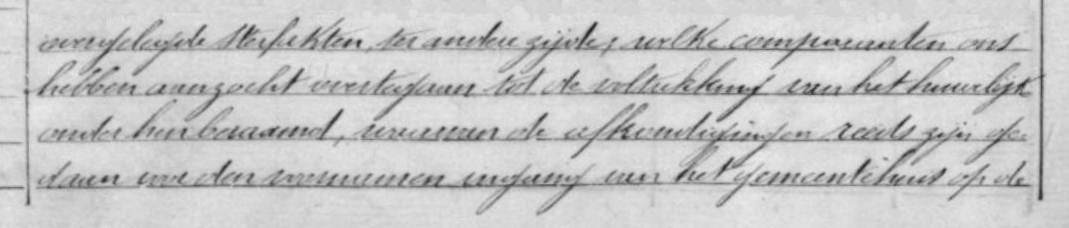 overgelegde sterfakten, ter andere zijde; welke comparanten ons
hebben aangezocht overtegaan tot de voltrekking van het huwelijk
onder hen beraamd, waarvan de afkondigingen reeds zijn ge-
daan voor den voornamen ingang van het gemeentehuis op de